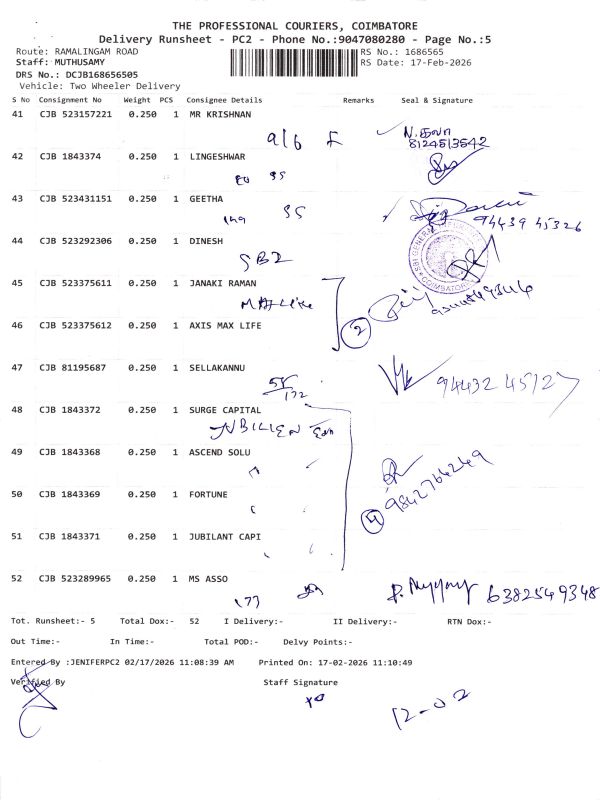 THE PROFESSIONAL COURIERS, COIMBATORE
Delivery Runsheet - PC2 - Phone No.:9047080280 - Page No.:5
Route: RAMALINGAM ROAD
RS No.: 1686565
Staff: MUTHUSAMY
RS Date: 17-Feb-2026
DRS No.: DCJB168656505
Vehicle: Two Wheeler Delivery
S No Consignment No Weight PCS Consignee Details Remarks Seal & Signature
41 CJB 523157221 0.250 1 MR KRISHNAN
8124513542
42 CJB 1843374 0.250 1 LINGESHWAR
43 CJB 523431151 0.250 1 GEETHA
94439 45326
44 CJB 523292306 0.250 1 DINESH
SBI GENERAL
COIMBATORE
45 CJB 523375611 0.250 1 JANAKI RAMAN
2
46 CJB 523375612 0.250 1 AXIS MAX LIFE
47 CJB 81195687 0.250 1 SELLAKANNU
94432 45127
48 CJB 1843372 0.250 1 SURGE CAPITAL
49 CJB 1843368 0.250 1 ASCEND SOLU
9842764249
50 CJB 1843369 0.250 1 FORTUNE
4
51 CJB 1843371 0.250 1 JUBILANT CAPI
52 CJB 523289965 0.250 1 MS ASSO
177
6382549348
Tot. Runsheet:- 5 Total Dox:- 52 I Delivery:- II Delivery:- RTN Dox:-
Out Time:- In Time:- Total POD:- Delvy Points:-
Entered By :JENIFERPC2 02/17/2026 11:08:39 AM Printed On: 17-02-2026 11:10:49
Verified By Staff Signature